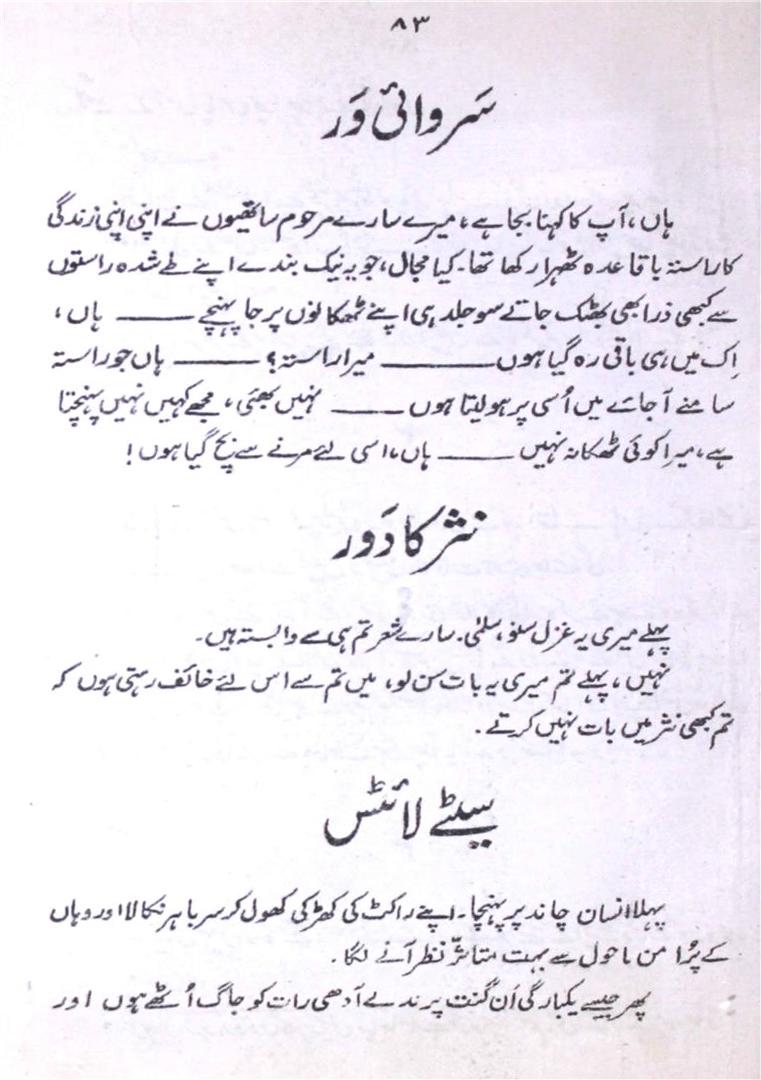 ۸۳
سَروائی وَر
ہاں، آپ کا کہنا بجا ہے، میرے سارے مرحوم ساتھیوں نے اپنی اپنی زندگی
کا راستہ باقاعدہ ٹھہرا رکھا تھا۔ کیا مجال، جو یہ نیک بندے اپنے طے شدہ راستوں
سے کبھی ذرا بھی بھٹک جاتے سو جلد ہی اپنے ٹھکانوں پر جا پہنچے ——— ہاں،
اِک میں ہی باقی رہ گیا ہوں ——— میرا راستہ؟ ——— ہاں جو راستہ
سامنے آجائے میں اُسی پر ہو لیتا ہوں ——— نہیں بھئی، مجھے کہیں نہیں پہنچنا
ہے، میرا کوئی ٹھکانہ نہیں ——— ہاں، اسی لئے مرنے سے بچ گیا ہوں!
نثر کا دَور
پہلے میری یہ غزل سنو، سلمٰی۔ سارے شعر تم ہی سے وابستہ ہیں۔
نہیں، پہلے تم میری یہ بات سن لو، میں تم سے اس لئے خائف رہتی ہوں کہ
تم کبھی نثر میں بات نہیں کرتے۔
سیٹے لائٹس
پہلا انسان چاند پر پہنچا۔ اپنے راکٹ کی کھڑکی کھول کر سر باہر نکالا اور وہاں
کے پُرامن ماحول سے بہت متاثر نظر آنے لگا۔
پھر جیسے یکبارگی اَن گنت پرندے آدھی رات کو جاگ اُٹھے ہوں اور